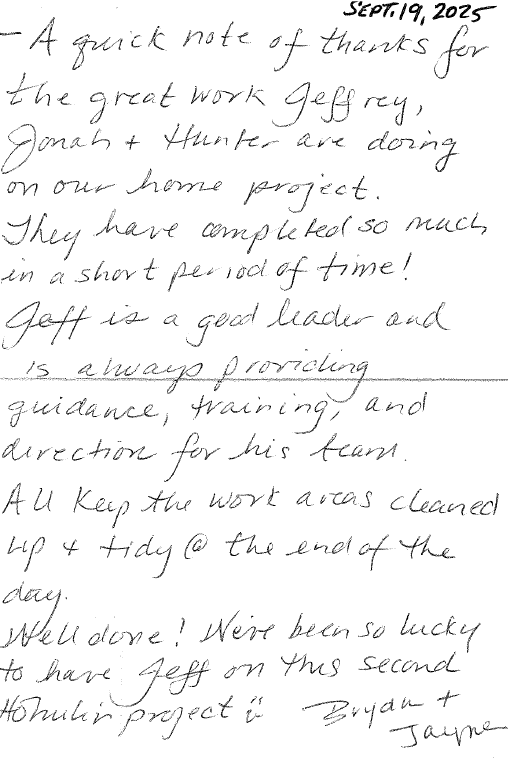 SEPT. 19, 2025
- A quick note of thanks for
the great work Jeffrey,
Jonah + Hunter are doing
on our home project.
They have completed so much
in a short period of time!
Jeff is a good leader and
is always providing
guidance, training, and
direction for his team.
All keep the work areas cleaned
up + tidy @ the end of the
day.
Well done! We've been so lucky
to have Jeff on this second
project
Bryan +
Jayne